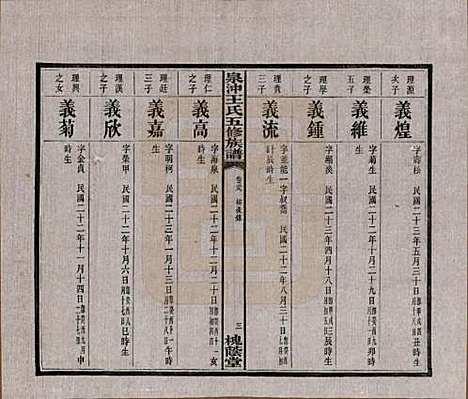 理源
次子
義煌
字壽松 民國二十三年五月三十日
丑時生
理榮
五子
義維
字菊生 民國二十二年四月二十九日
卯時生
理學
之子
義鍾
字顯漢 民國二十三年四月十八日
辰時生
理貴
三子
義流
字並能一字叔喬 民國二十二年八月三十日
計辰時生
泉沖王氏五修族譜
三 槐蔭堂
理仁
之子
義高
字海泉 民國二十二年二月十日
亥時生
理廷
三子
義嘉
字明柯 民國二十三年一月十三日
午時生
理漢
之子
義欣
字榮甲 民國二十二年十月六日
巳時生
理興
之女
義菊
字金貞 民國二十二年十一月十四日
申時生